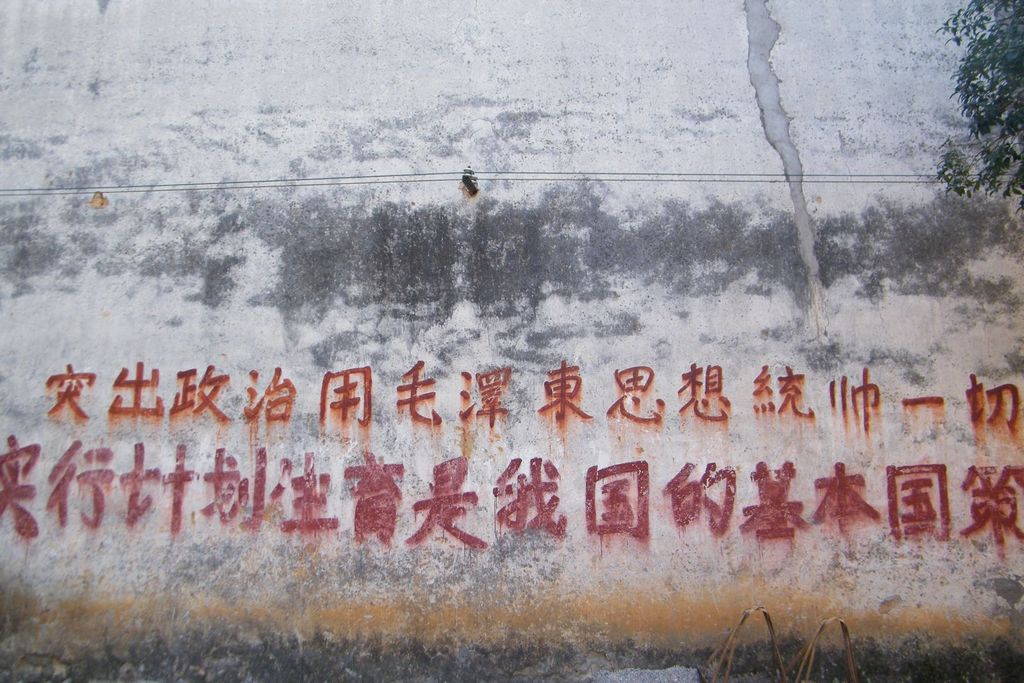 突出政治用毛澤東思想統帅一切
实行计划生育是我国的基本国策